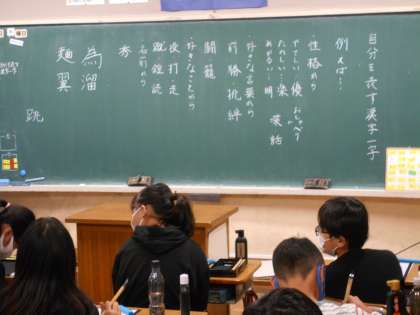 自分を表す漢字一字
例えば…
・性格から
やさしい…優
おしゃべり
たのしい…楽
あかるい…明
喋 話
・好きな言葉から
前・勝・挑・絆
・好きなことから
闘 籠
投 打 走
名前から
秀
為 溜
麺 翼
跳
曜日